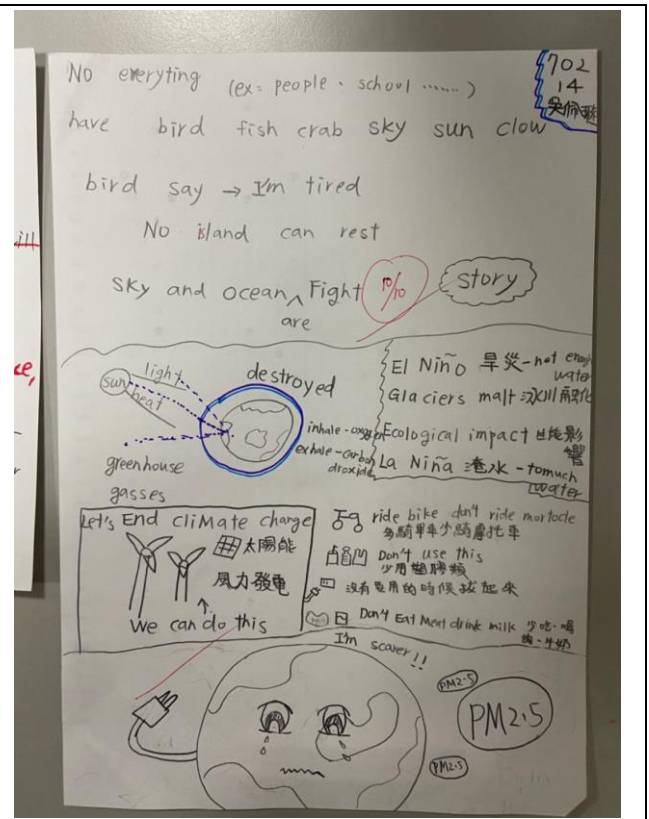 No everyting (ex: people、school ......)
702
14
have bird fish crab sky sun clow
bird say → I'm tired
No island can rest
sky and ocean ^ Fight
are
10/10
story
sun
light
heat
destroyed
greenhouse
gasses
inhale-oxygen
exhale-carbon
droxide
El Niño 旱災-not enough
water
Glaciers malt 冰川融化
Ecological impact 生態影
響
La Niña 淹水-tomuch
water
Let's End cliMate change
太陽能
風力發電
We can do this
ride bike don't ride mortocle
多騎單車少騎摩托車
Don't use this
少用塑膠類
沒有要用的時候拔起來
Don't Eat Meat drink milk 少吃、喝
肉、牛奶
I'm scarer!!
PM2.5
PM2.5
PM2.5
ill